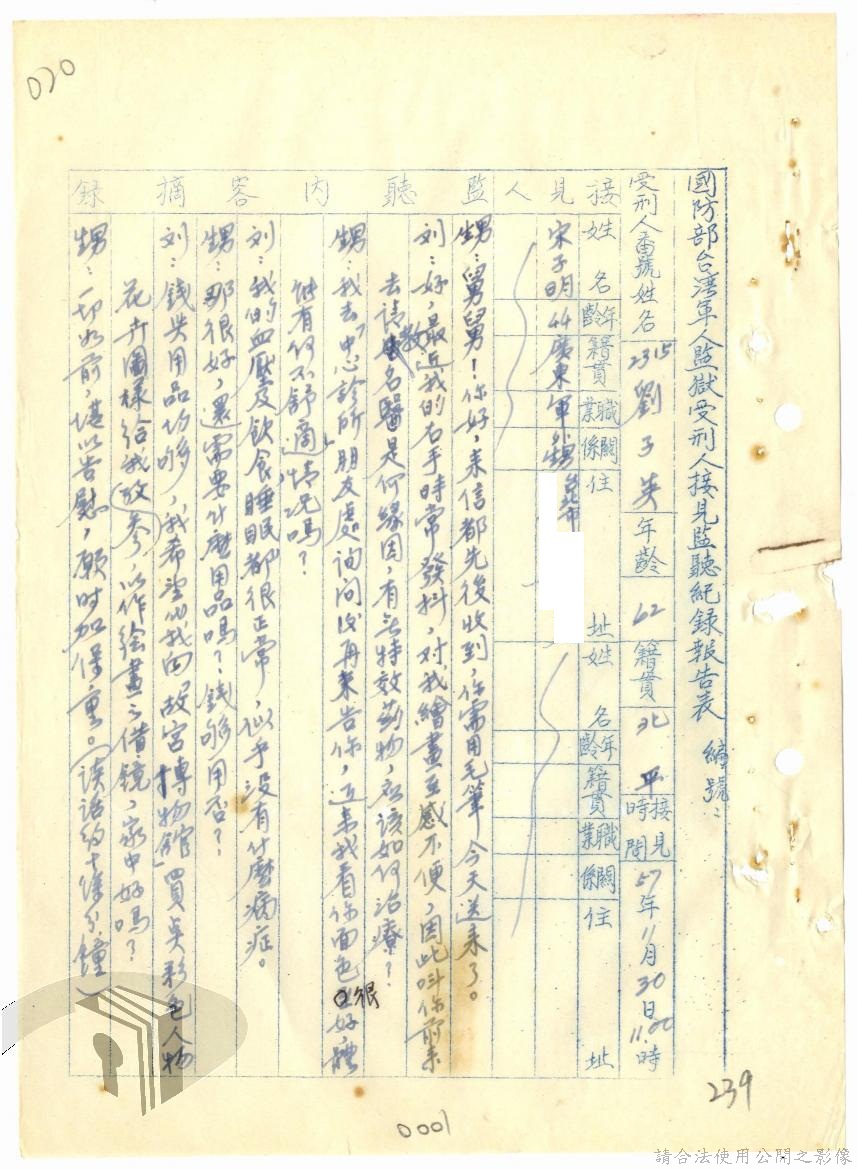 020
國防部台湾軍人監獄受刑人接見監聽紀錄報告表 編號：
受刑人番號姓名 2315 劉子英 年齡 62 籍貫 北平 接見時間 57年11月30日11.00時
接見人 姓名 年齡 籍貫 職業 關係 住址 姓名 年齡 籍貫 職業 關係 住址
宋子明 44 廣東 軍 甥 台北市
監聽內容摘錄
甥：舅舅！你好，來信都先後收到，你需用毛筆今天送來了。
刘：好，最近我的右手時常發抖，对我繪畫至感不便，因此叫你前來
去請教名醫是何緣因，有無特效葯物，应该如何治療？
甥：我去「中心診所」朋友處詢问後再来告你，近来我看你面色很好，體
能有何不舒適情况吗？
刘：我的血壓及飲食睡眠都很正常，似乎沒有什麼病症。
甥：那很好，還需要什麼用品嗎？錢够用否？
刘：錢與用品均够，我希望你我回「故宮博物館」買奌彩色人物
花卉圖樣给我参，以作绘畫之借镜，家中好嗎？
甥：一切如前，堪以告慰，願时加保重。（谈话约十伍分鐘）
239
0001
請合法使用公開之影像